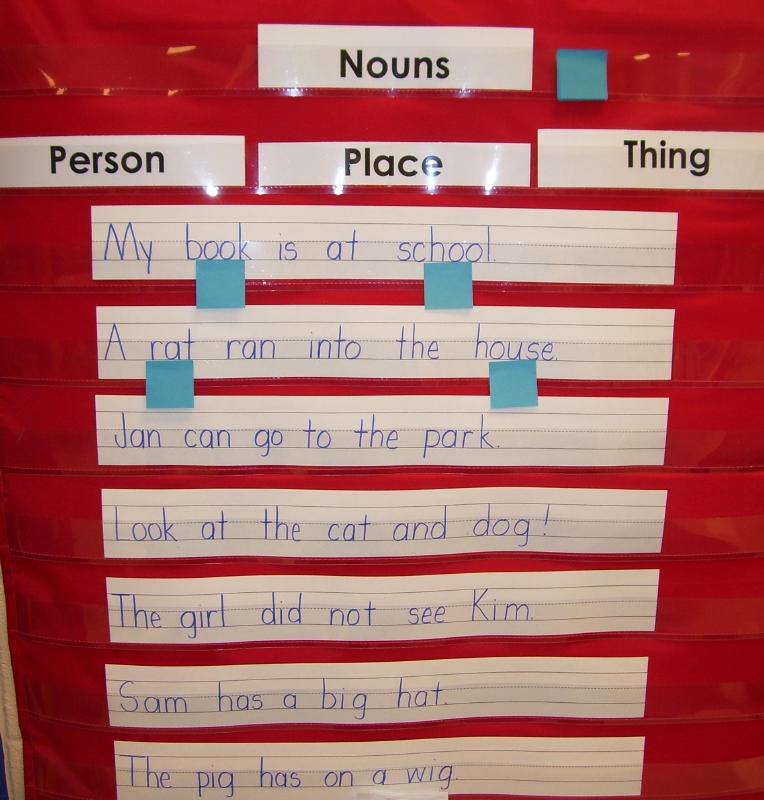 Nouns
Person Place Thing
My book is at school.
A rat ran into the house.
Jan can go to the park.
Look at the cat and dog!
The girl did not see Kim.
Sam has a big hat.
The pig has on a wig.